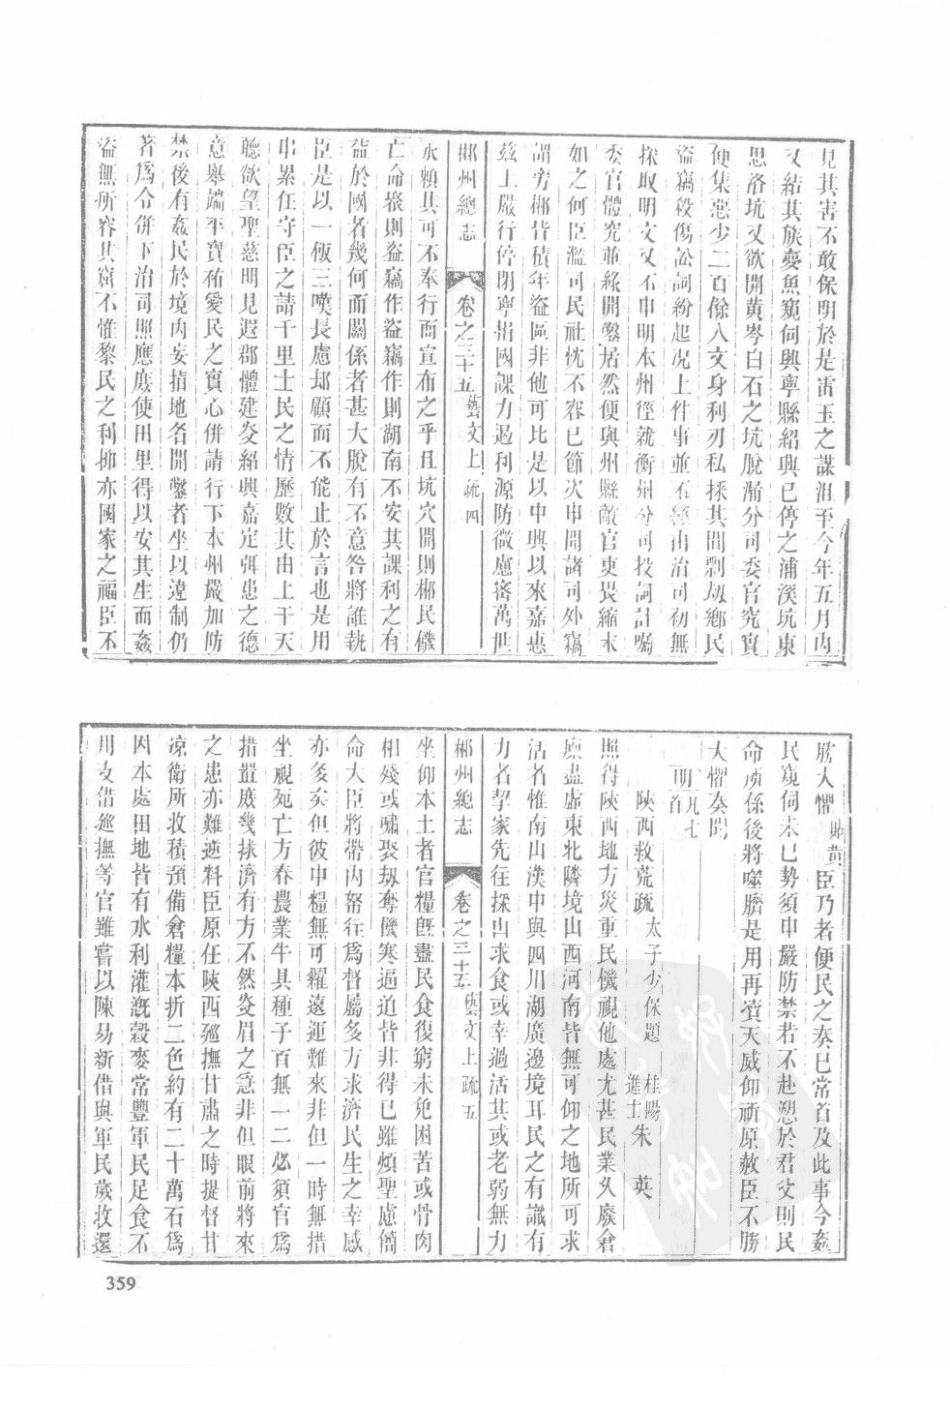 見其害不敢保明於是雷玉之謀沮至今年五月內
又結其族蠻魚窺伺興寧縣紹興已停之浦溪坑東
思洛坑又欲開黃岑白石之坑脫漏分司委官究實
便集惡少二百餘人文身利刃私採其間剽刼鄉民
盜竊殺傷訟詞紛起况上件事並不經由治司初無
採取明文又不申明本州徑就衡州分司投詞計囑
委官體究並緣開鑿居然便與州縣敵官吏畏縮末
如之何臣濫司民社忱不容已節次申聞諸司外竊
謂旁郴皆積年盜區非他可比是以中興以來嘉惠
茲土嚴行停閉寧捐國課力遏利源防微慮審萬世
郴州總志 卷之三十五 藝文上 疏 四
永賴其可不奉行而宣布之乎且坑穴開則郴民儀
亡命聚則盜竊作盜竊作則湖南不安其課利之有
益於國者幾何而關係者甚大脫有不意咎將誰執
臣是以一極三嘆長慮却顧而不能止於言也是用
串累任守臣之請千里士民之情歷數其由上干天
聽欲望聖慈明見遐郡體建炎紹興嘉定弭患之德
意舉端平寶祐愛民之實心併請行下本州嚴加防
禁後有姦民於境內妄指地名開鑿者坐以違制仍
著爲令併下治司照應庶使田里得以安其生而姦
盜無所容其窺不惟黎民之利抑亦國家之福臣不
勝大懼貼黃臣乃者便民之奏已常首及此事今姦
民窺伺未已勢須申嚴防禁若不赴愬於君父則民
命所係後將噬臍是用再瀆天威仰祈原赦臣不勝
大懼奏聞
明凡七首
陝西救荒疏 太子少保題 桂陽進士朱 英
照得陝西地方災重民饑視他處尤甚民業久廢倉
廪盡虛東北隣境山西河南皆無可仰之地所可求
活者惟南山漢中與四川湖廣邊境耳民之有識有
力者挈家先往採山求食或幸過活其或老弱無力
郴州總志 卷之三十五 藝文上 疏 五
坐仰本土者官糧旣盡民食復窮未免困苦或骨肉
相殘或嘯聚刼奪饑寒逼迫皆非得已雖煩聖慮簡
命大臣將帶內帑往爲督屬多方求濟民生之幸感
亦多矣但彼中糧無可糴遠運難來非但一時無措
坐視死亡方春農業牛具種子百無一二必須官爲
措置庶幾拯濟有方不然炎眉之急非但眼前將來
之患亦難逆料臣原任陝西廵撫甘肅之時提督甘
凉衛所收積預備倉糧本折二色約有二十萬石爲
因本處田地皆有水利灌漑穀麥常豐軍民足食不
用支借廵撫等官雖嘗以陳易新借與軍民歲收還
359